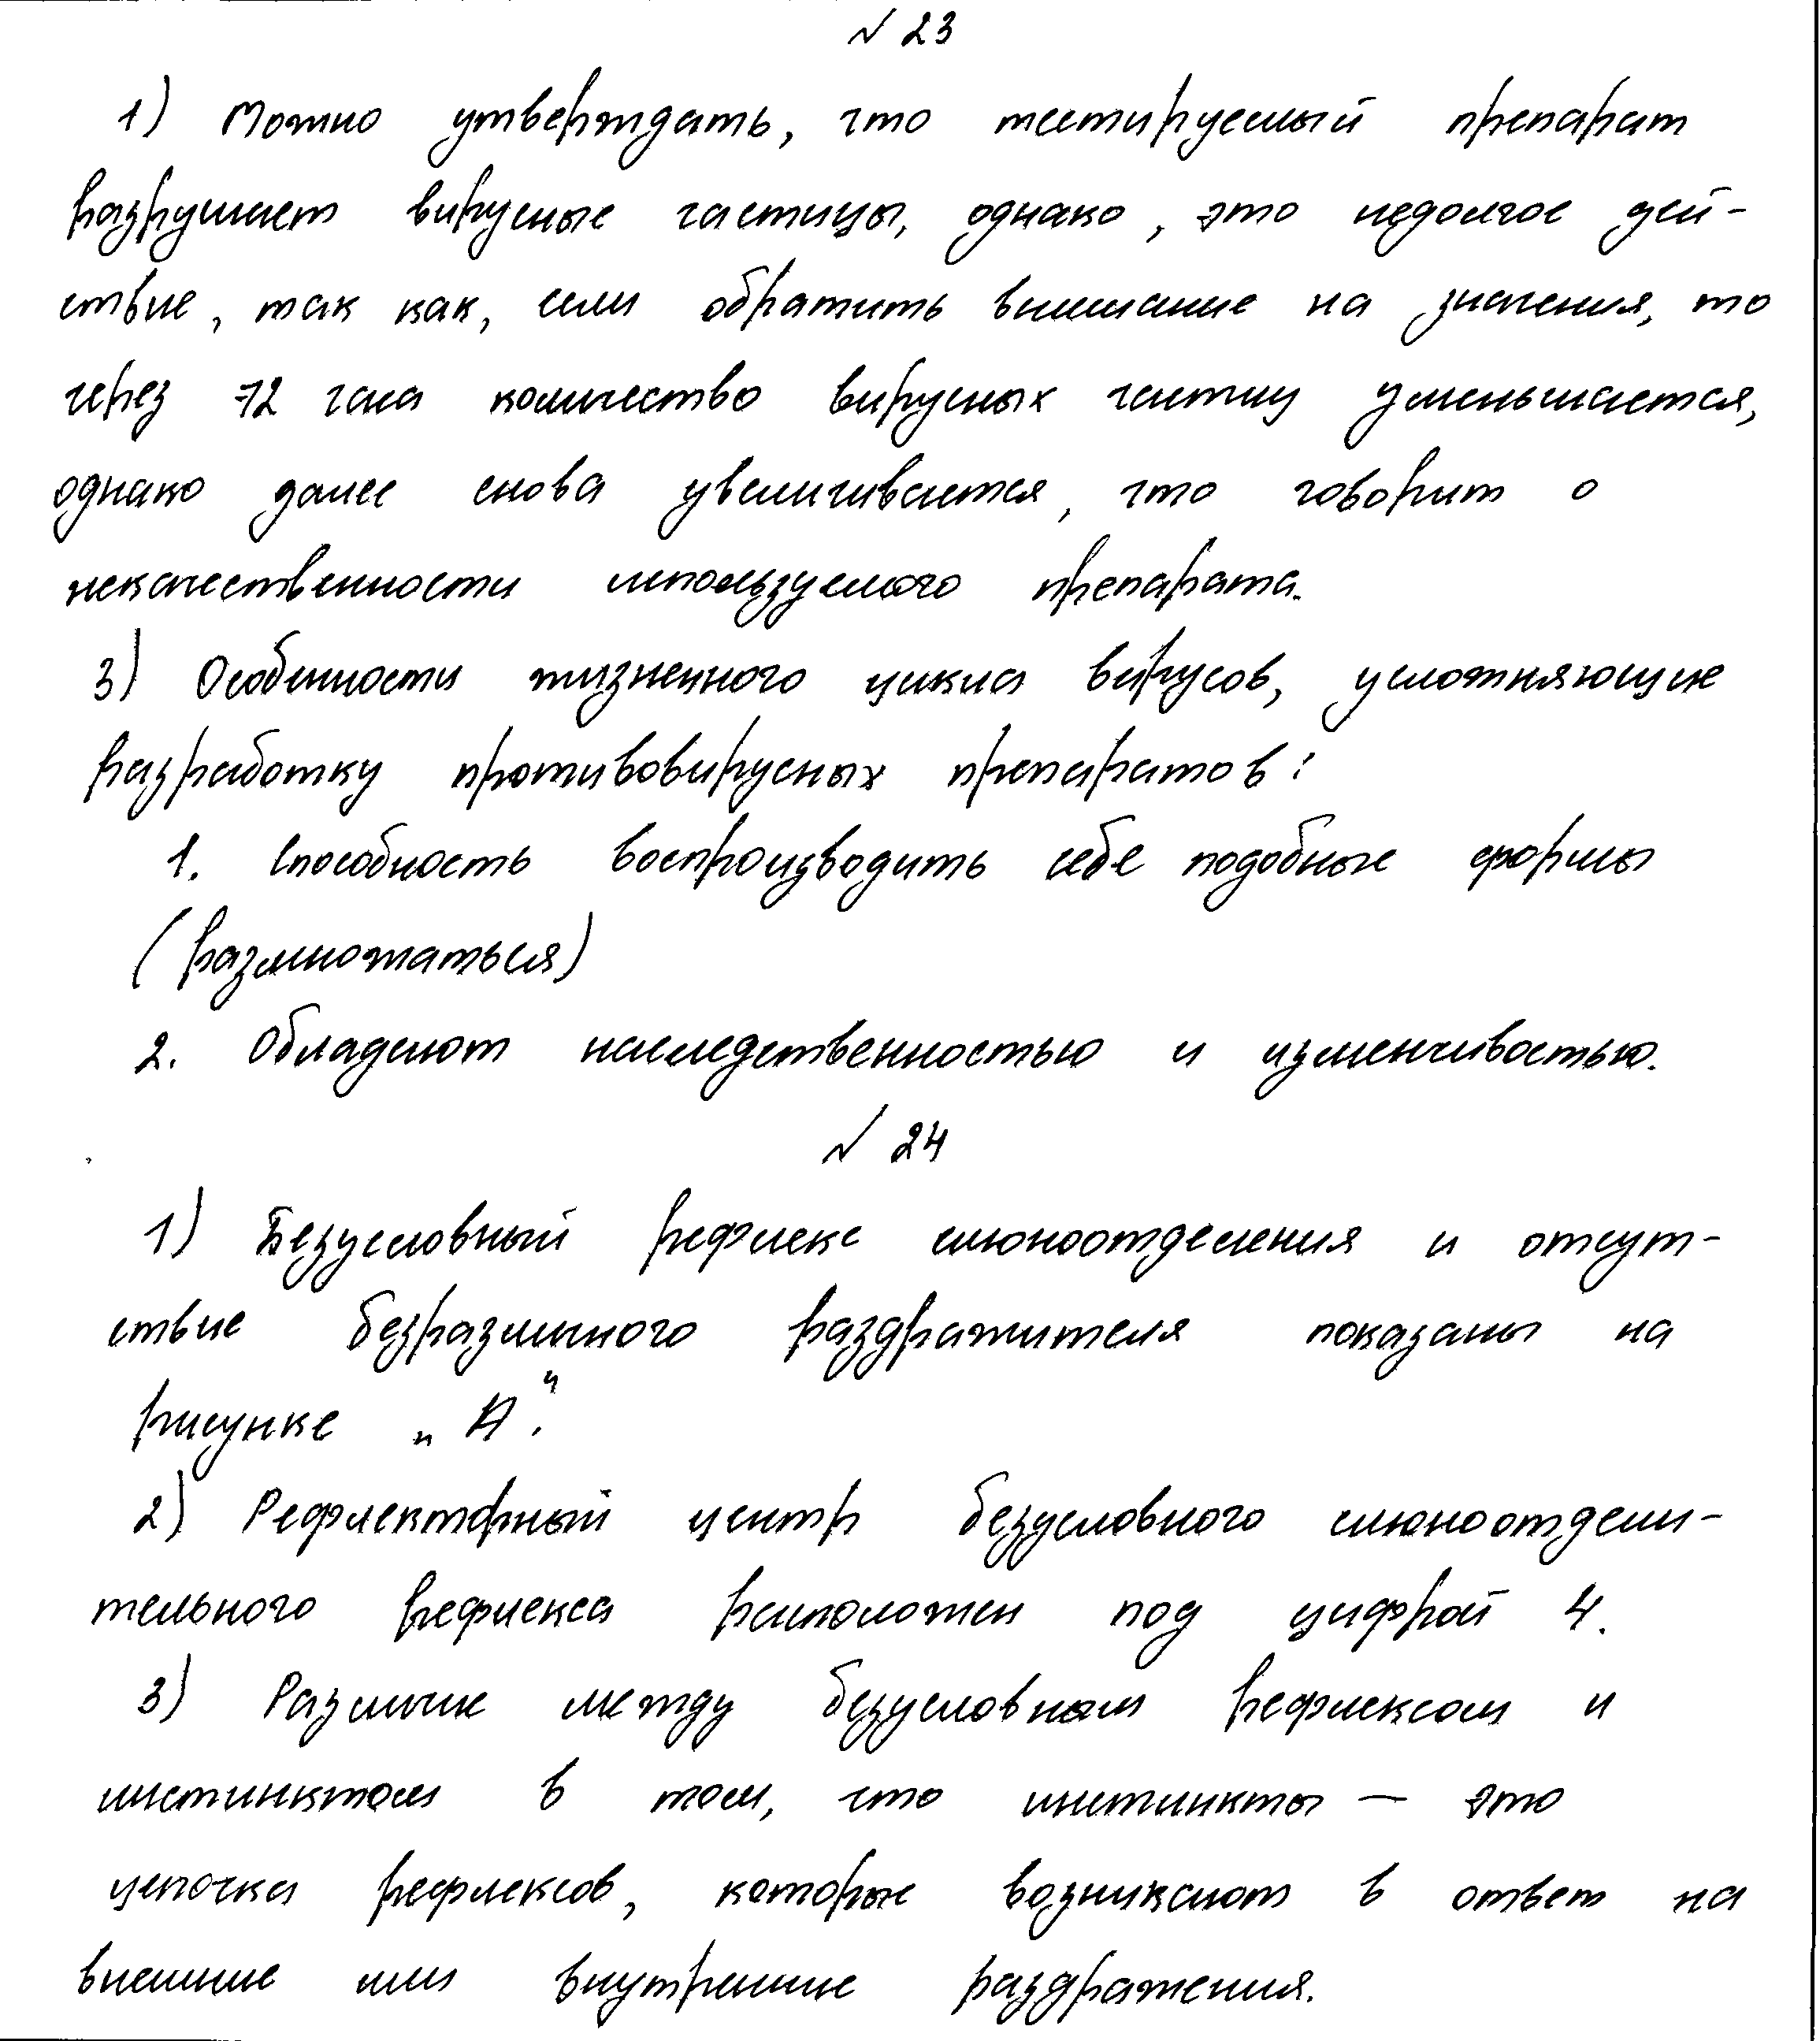 № 23
1) Можно утверждать, что тестируемый препарат
разрушает вирусные частицы, однако, это недолгое дей-
ствие, так как, если обратить внимание на значения, то
через 72 часа количество вирусных частиц уменьшается,
однако далее снова увеличивается, что говорит о
некачественности используемого препарата.
3) Особенности жизненного цикла вирусов, усложняющие
разработку противовирусных препаратов:
1. Способность воспроизводить себе подобные формы
(размножаться)
2. Обладают наследственностью и изменчивостью.
№ 24
1) Безусловный рефлекс слюноотделения и отсут-
ствие безразличного раздражителя показаны на
рисунке „А".
2) Рефлекторный центр безусловного слюноотдели-
тельного рефлекса расположен под цифрой 4.
3) Различие между безусловным рефлексом и
инстинктом в том, что инстинкты — это
цепочка рефлексов, которые возникают в ответ на
внешние или внутренние раздражения.